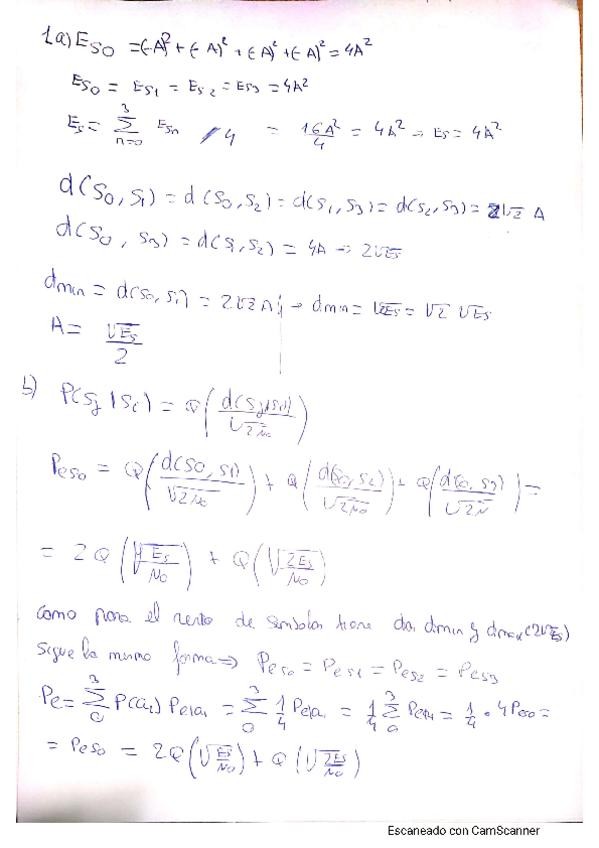 1.a) Es0 = (-A)² + (-A)² + (-A)² + (-A)² = 4A²
Es0 = Es1 = Es2 = Es3 = 4A²
Es = Σ_{n=0}^{3} Esn / 4 = 16A²/4 = 4A² → Es = 4A²
d(S0, S1) = d(S0, S2) = d(S1, S3) = d(S2, S3) = 2√2 A
d(S0, S3) = d(S1, S2) = 4A → 2√Es
dmin = d(S0, S1) = 2√2 A ; → dmin = √2Es = √2 √Es
A = √Es/2
b) P(Sj | Si) = Q(d(Sj, Si)/√2N0)
Pes0 = Q(d(S0, S1)/√2N0) + Q(d(S0, S2)/√2N0) + Q(d(S0, S3)/√2N) =
= 2Q(√Es/N0) + Q(√2Es/N0)
Como para el resto de símbolos tiene dos dmin y dmax(2√Es)
sigue la misma forma ⇒ Pes0 = Pes1 = Pes2 = Pes3
Pe = Σ_{0}^{3} P(ai) Pe|ai = Σ_{0}^{3} 1/4 Pe|ai = 1/4 Σ_{0}^{3} Pe|ai = 1/4 · 4Pes0 =
= Pes0 = 2Q(√Es/N0) + Q(√2Es/N0)
Escaneado con CamScanner